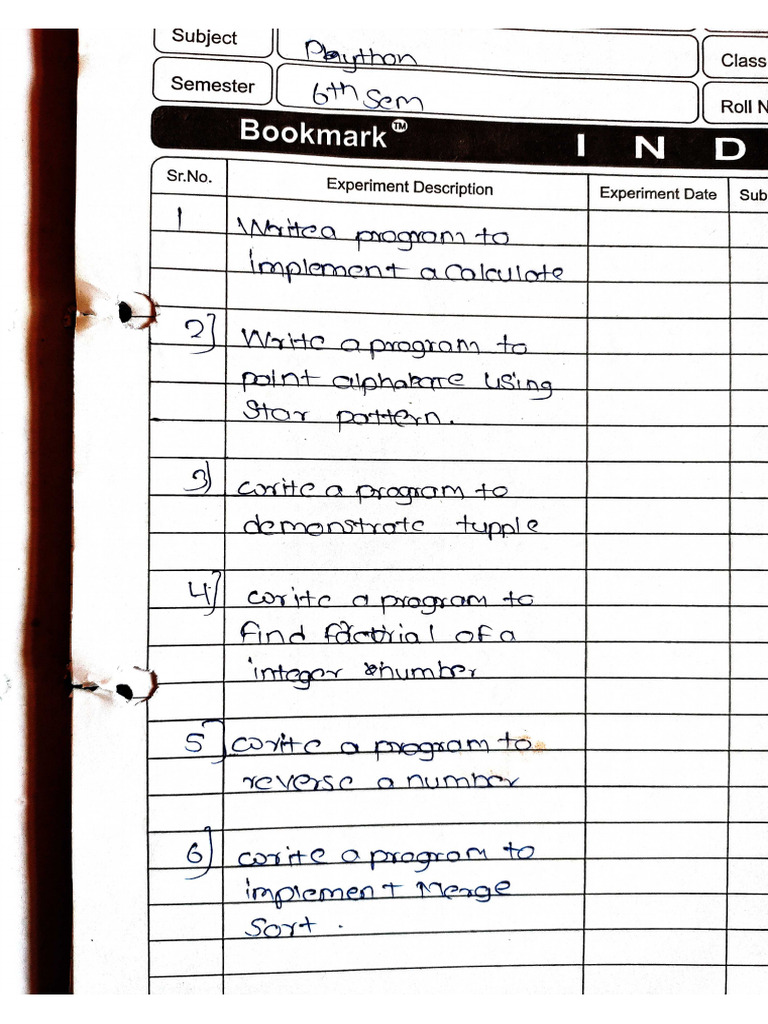 Subject Paython Class
Semester 6th Sem Roll N
Bookmark™ I N D
Sr.No. Experiment Description Experiment Date Sub
1 Write a program to
implement a Calculate
2] Write a program to
point alphabate using
Star pattern.
3) write a program to
demonstrate tupple
4] write a program to
find factrial of a
integer number
5] write a program to
reverse a number
6] write a program to
implement Merge
Sort.